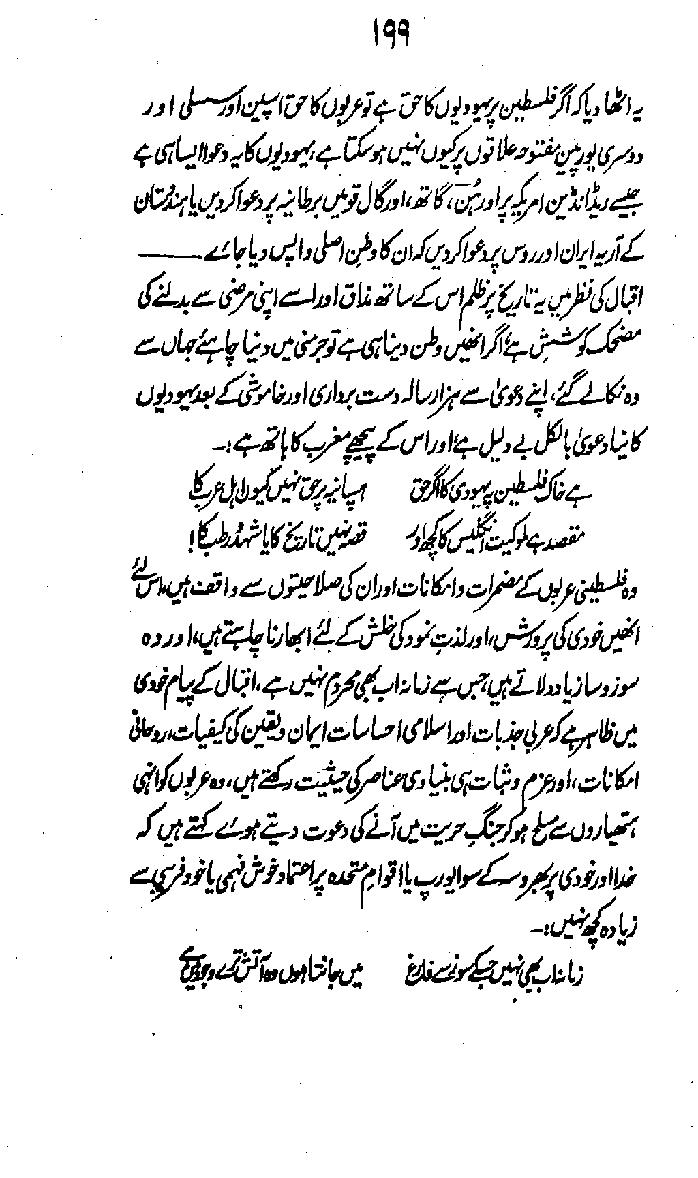 ۱۹۹
یہ اٹھا دیا کہ اگر فلسطین پر یہودیوں کا حق ہے تو عربوں کا حق اسپین اور سسلی اور
دوسری یورپین مفتوحہ علاقوں پر کیوں نہیں ہو سکتا ہے، یہودیوں کا یہ دعوا ایسا ہی ہے
جیسے ریڈ انڈین امریکہ پر اور ہُن، گاتھ، اور گال قومیں برطانیہ پر دعوا کر دیں یا ہندستان
کے آریہ ایران اور روس پر دعوا کر دیں کہ ان کا وطن اصلی واپس دیا جائے ———
اقبال کی نظر میں یہ تاریخ پر ظلم اس کے ساتھ مذاق اور اسے اپنی مرضی سے بدلنے کی
مضحک کوشش ہے، اگر انھیں وطن دینا ہی ہے تو جرمنی میں دینا چاہئے جہاں سے
وہ نکالے گئے، اپنے دعویٰ سے ہزار سالہ دست برداری اور خاموشی کے بعد یہودیوں
کا نیا دعویٰ بالکل بے دلیل ہے، اور اس کے پیچھے مغرب کا ہاتھ ہے :۔
ہے خاکِ فلسطین پہ یہودی کا اگر حق ہسپانیہ پر حق نہیں کیوں اہل عرب کا
مقصد ہے ملوکیت انگلیس کا کچھ اور قصہ نہیں تاریخ کا یا شہد و رطب کا!
وہ فلسطینی عربوں کے مضمرات و امکانات اور ان کی صلاحیتوں سے واقف ہیں، اس لئے
انھیں خودی کی پرورش، اور لذتِ نمود کی خلش کے لئے ابھارنا چاہتے ہیں، اور وہ
سوز و ساز یاد دلاتے ہیں، جس سے زمانہ اب بھی محروم نہیں ہے، اقبال کے پیام خودی
میں ظاہر ہے کہ عربی جذبات اور اسلامی احساسات ایمان و یقین کی کیفیات، روحانی
امکانات، اور عزم و ثبات ہی بنیادی عناصر کی حیثیت رکھتے ہیں، وہ عربوں کو انہی
ہتھیاروں سے مسلح ہو کر جنگِ حریت میں آنے کی دعوت دیتے ہوئے کہتے ہیں کہ
خدا اور خودی پر بھروسہ کے سوا یورپ یا اقوام متحدہ پر اعتماد خوش فہمی یا خود فریبی سے
زیادہ کچھ نہیں :۔
زمانہ اب بھی نہیں جس کے سوز سے فارغ میں جانتا ہوں وہ آتش ترے وجود میں ہے